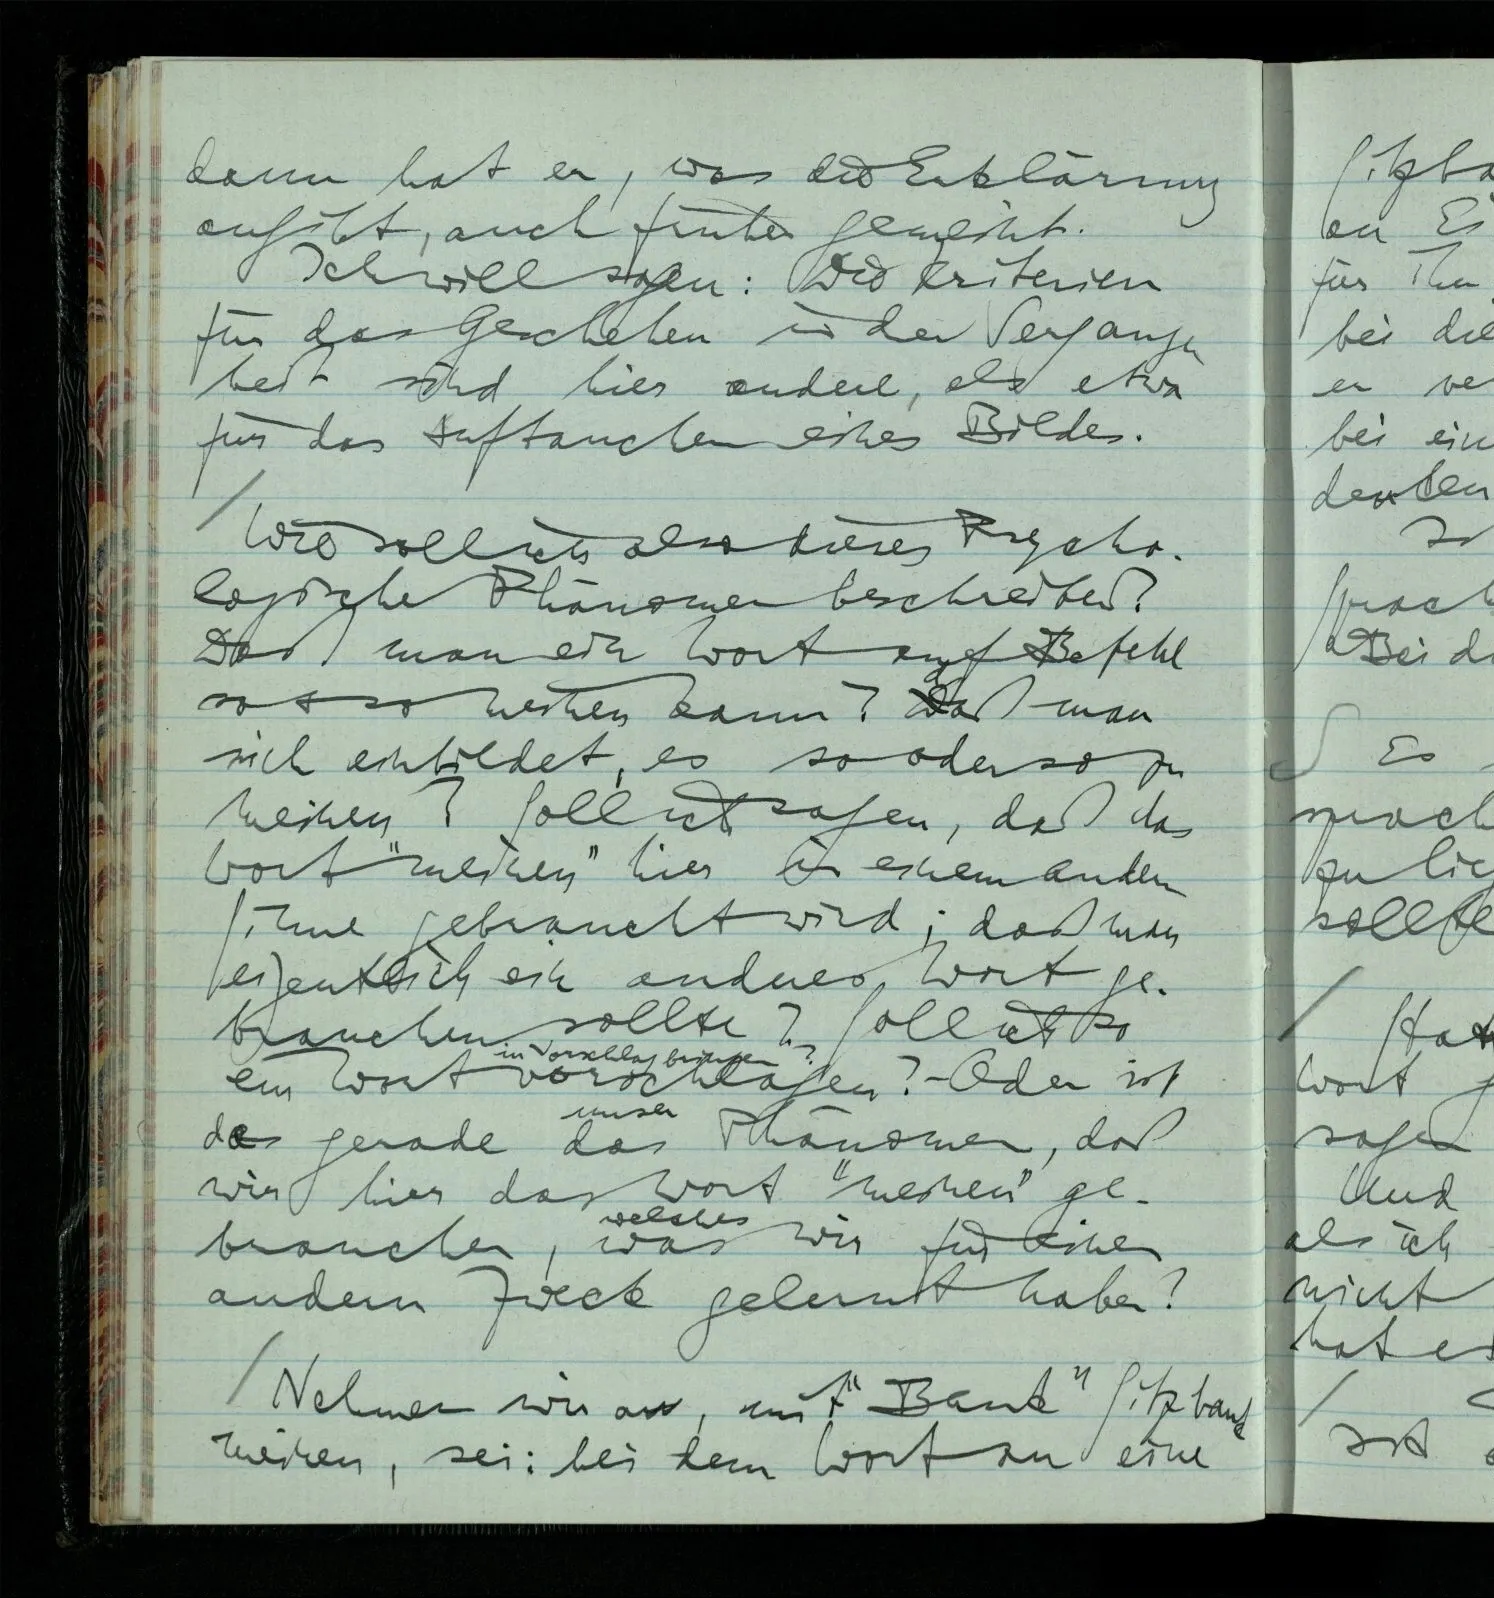 dann hat er, was die Erklärung
angibt, auch früher gemeint.
Ich will sagen: Die Kriterien
für das Geschehen in der Vergangen
heit sind hier andere, als etwa
für das Auftauchen eines Bildes.
/
Wie soll ich also dieses Psycho-
logische Phänomen beschreiben?
Daß man ein Wort auf Befehl
so + so meinen kann? Daß man
sich einbildet, es so oder so zu
meinen? Soll ich sagen, daß das
Wort "meinen" hier in einem andern
Sinne gebraucht wird; daß man
eigentlich ein anderes Wort ge-
brauchen sollte? Soll ich so
in Vorschlag bringen?
ein Wort vorschlagen? – Oder ist
unser
das gerade das Phänomen, daß
wir hier das Wort "meinen" ge-
welches
brauchen, was wir für einen
andern Zweck gelernt haben?
/
Nehmen wir an, mit "Bank" Sitzbank
meinen, sei: bei dem Wort an eine
Sitzba
an Ei
für ihn
bei die
er ve
bei ein
denken
Bei d
Es
sprach
zu lie
sollte
/
Hat
Wort g
sagen
Und
als ich
nicht
hat es
/
Ist